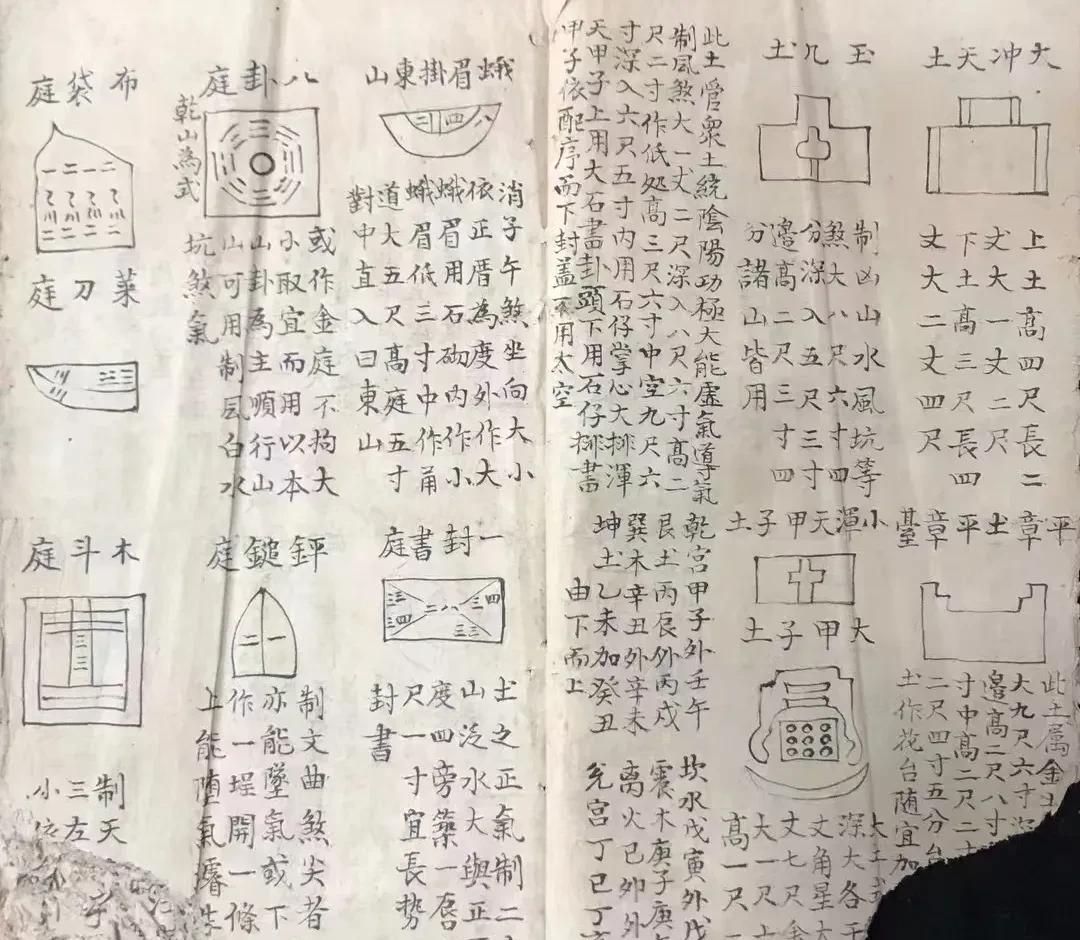 大冲天土
上土高四尺長二
丈大一丈二尺
下土高三尺長四
丈大二丈四尺
玉几土
制凶山水風坑等
煞大八尺六寸四
分深入五尺三寸
邊高二尺三寸四
分諸山皆用
此土管衆土統陰陽功極大能虛氣導氣
制風煞大一丈二尺深入八尺六寸高二
尺二寸作低处高三尺六寸中空九尺六
寸深入六尺五寸内用石仔掌心大排渾
天甲子上用大石書卦頭下用石仔排書
甲子依配序而下封盖不用太空
平章土平章臺
此土属金
大九尺六寸
邊高二尺八寸
寸中高二尺二
二尺四寸五分台
土作花台随宜加
小渾天甲子土
大甲子土
大土
深大各
丈角星
丈七尺
大一尺
高一尺
乾宫甲子外壬午
艮土丙辰外丙戌
巽木辛丑外辛未
坤土乙未加癸丑
由下而上
坎水戊寅外戊
震木庚子庚
离火己卯外
兑宫丁巳丁
蛾眉掛東山
二四八
消子午煞坐向大小
依正厝為度外作大
蛾眉用石砌内作小
蛾眉低三寸中作甬
道大五尺高庭五寸
對中直入曰東山
八卦庭
乾山為式
或作金庭不拘大
小取宜而用以本
山卦為主順行山
山可用制風白水
坑煞氣
布袋庭
菜刀庭
一封書庭
二八
土之正氣制二
山泛水大與正
度四旁藥一唇
尺一寸宜長勢
封書
鈃鎚庭
二一
制文曲煞尖者
亦能墜氣或下
作一埕開一條
上能墮氣
木斗庭
制天
三左
小依